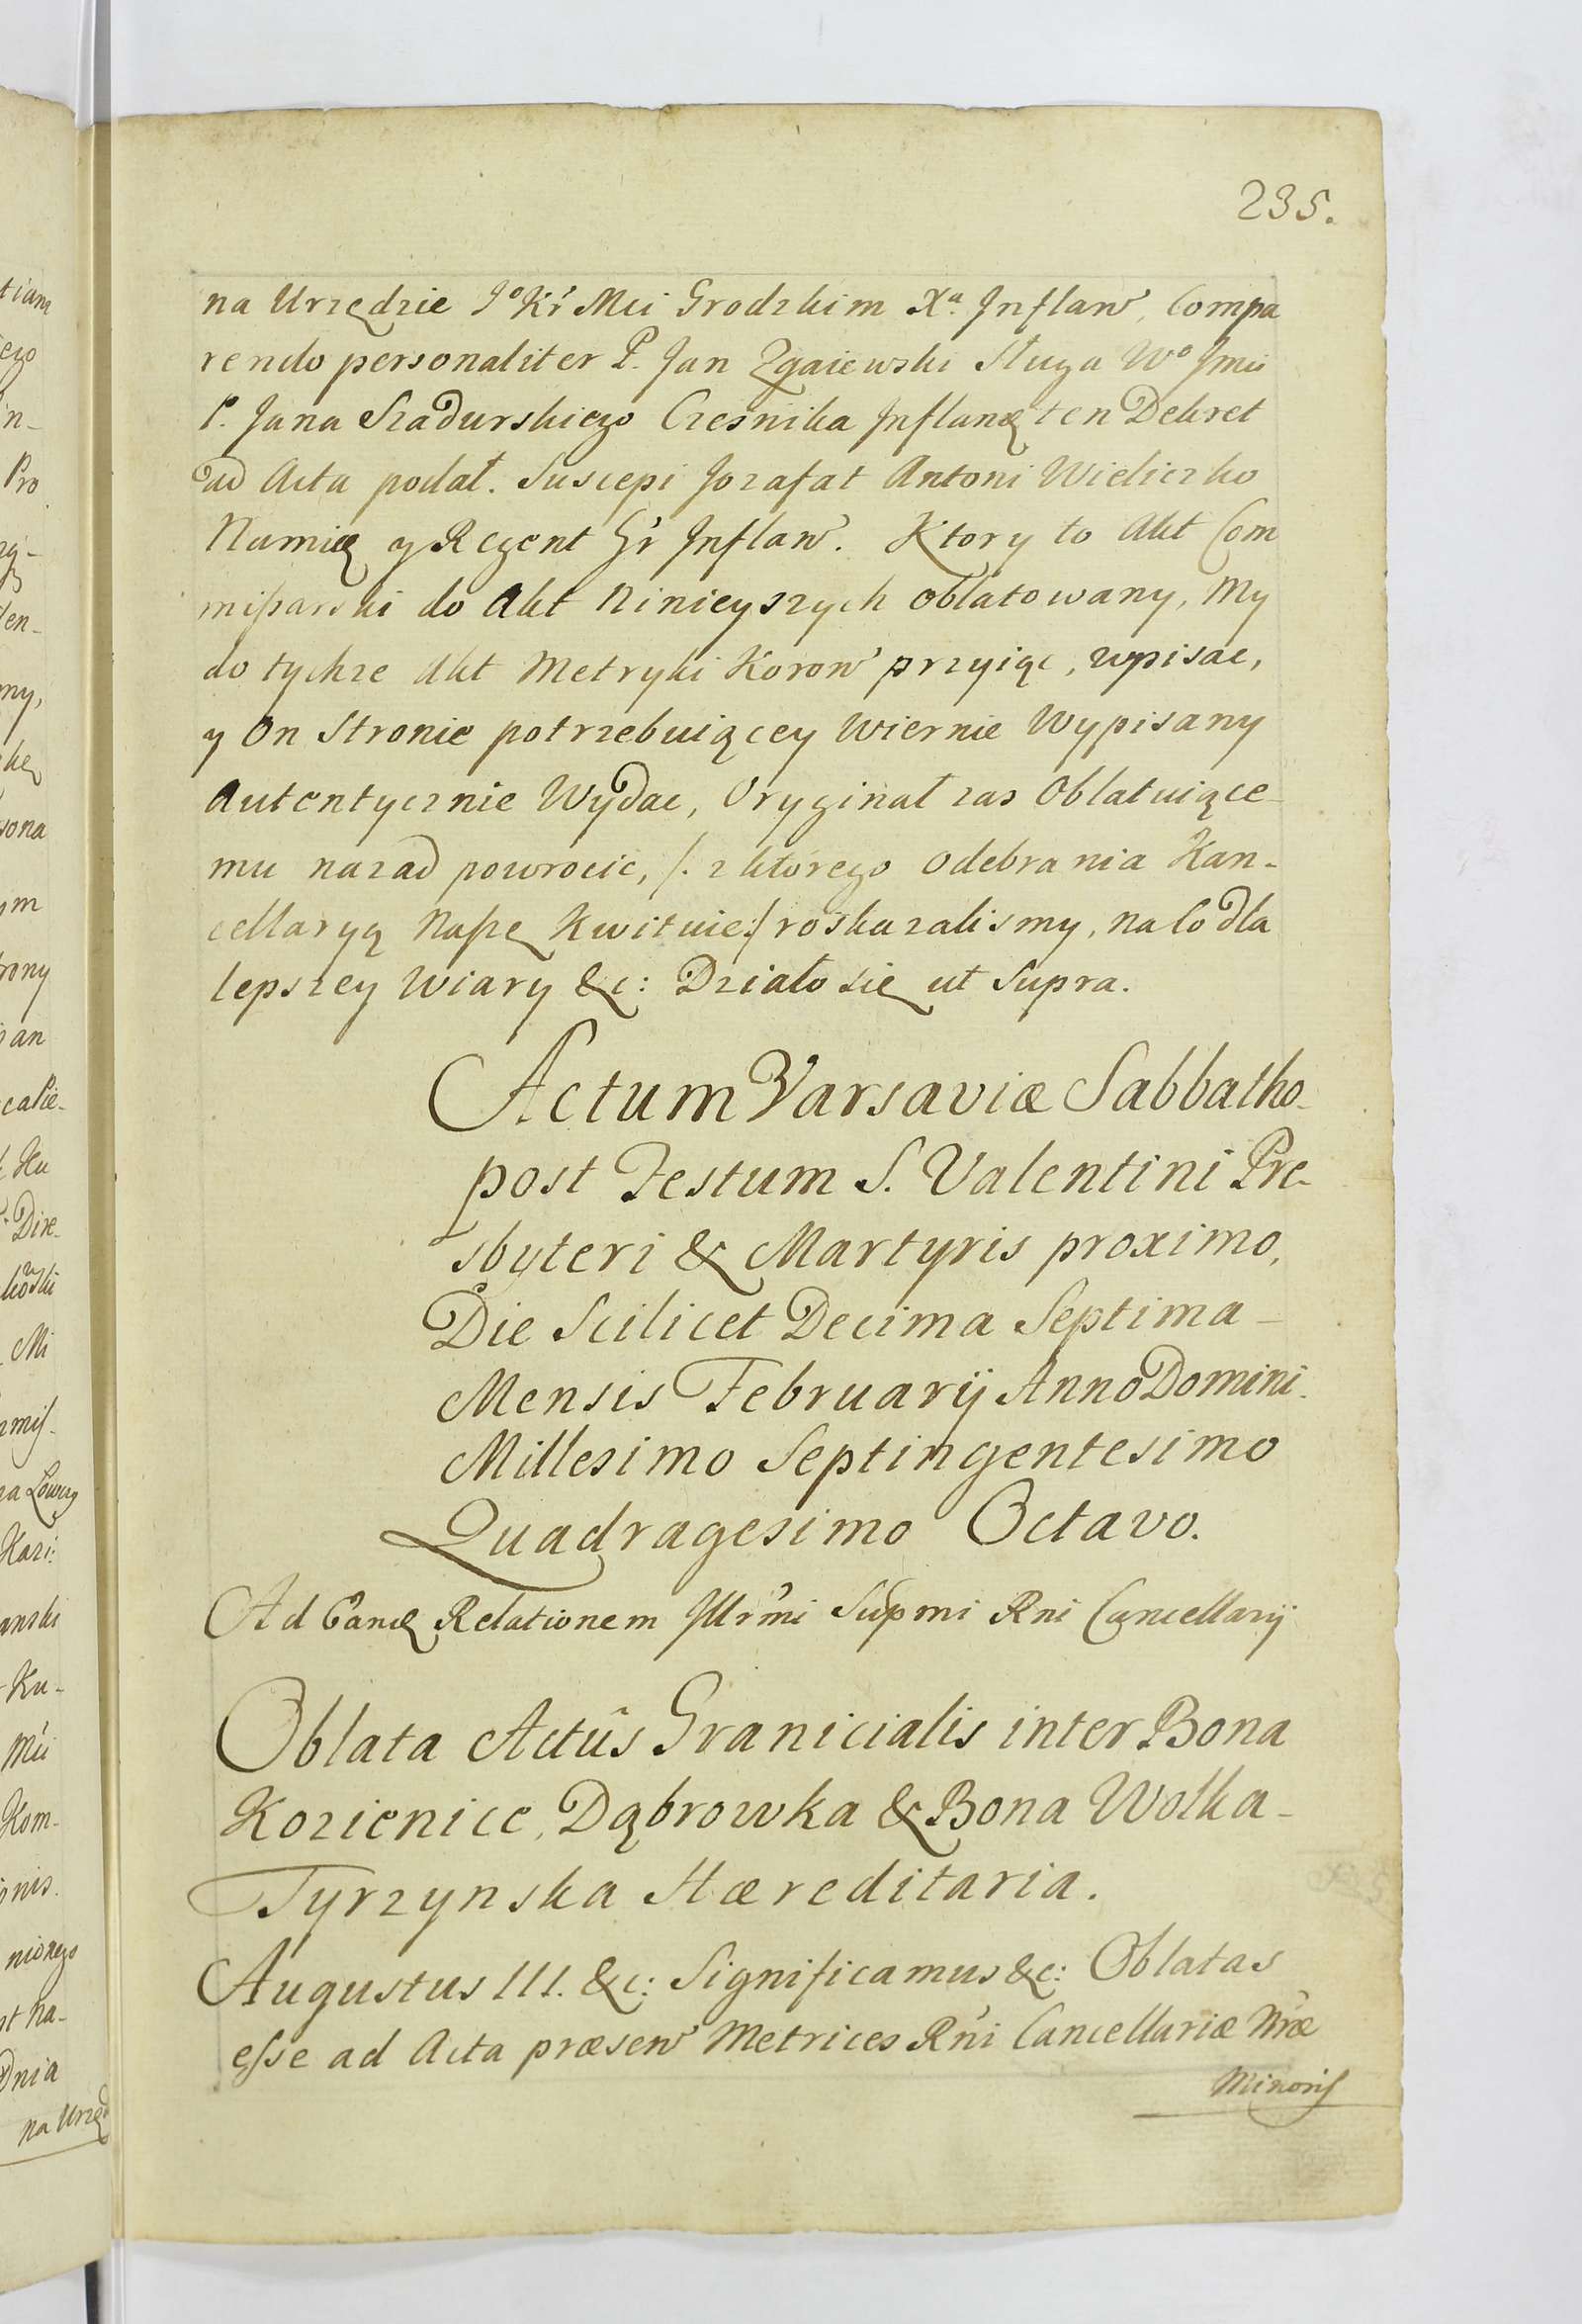 235.
na Urzędzie Jº Kr Mci Grodzkim Xa. Inflan, Compa
rendo personaliter P. Jan Zgaiewski Sługa Wº Jmci
P. Jana Szadurskiego Czesnika Inflanꝫ ten Dekret
ad Acta podał. Suscepi Jozafat Antoni Wieliczko
Namieꝫ y Regent Gr Inflan. Ktory to Akt Com
mißarski do Akt Ninieyszych oblatowany, My
do tychze Akt Metryki Koron przyiąc, wpisac,
y On Stronie potrzebuiącey Wiernie Wypisany
Autentycznie Wydac, Oryginał zas Oblatuiące-
mu nazad powrocic, /. z ktorego odebrania Kan-
cellaryą Naßę Kwituie:/ roskazalismy, na co dla
lepszey Wiary &c: Działo się ut Supra.
Actum Varsaviæ Sabbatho-
post Festum S. Valentini Pre-
sbyteri & Martyris proximo,
Die Scilicet Decima Septima-
Mensis Februarij Anno Domini.
Millesimo Septingentesimo
Quadragesimo Octavo.
Ad Eandꝫ Relationem Illrmi Supmi Rni Cancellarij
Oblata Actûs Granicialis inter Bona
Kozienice, Dąbrowka & Bona Wolka-
Tyrzynska Hæreditaria.
Augustus III. &c: Significamus &c: Oblatas
eſse ad Acta præsen Metrices Rni Cancellariæ Nræ
Minoris
tiam
ego
in-
Pro
den-
my,
sona
ym
rony
an
calie-
Ku
Dire-
Mi
za Łowcz
Kazi:
anski
Ku-
Mci
Kom-
nis.
nionego
st na-
Dnia
na Urzęd